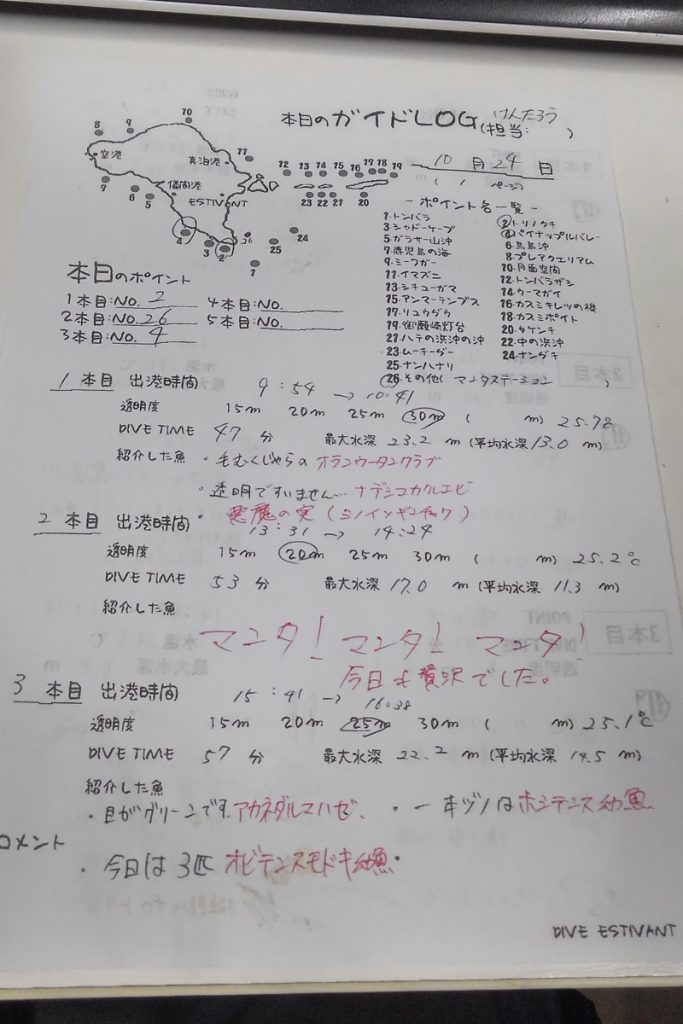 本日のガイドLOG(担当: けんたろう )
10月24日
( / ページ)
8 9 10
空港
真泊港
儀間港
ESTIVANT
7 6 5 11
12 13 14 15 16 17 18 19
23 22 21 20
4 3 2 26 25 24
1
- ポイント名一覧 -
1・トンバラ ②・トリノクチ
3・シャドーケーブ ④・パイナップルバレー
5・ガラサー山沖 6・烏島沖
7・鹿児島の海 8・プレアクエリアム
9・ミーフガー 10・月面空間
11・イマズニ 12・トンバラザシ
13・シチューガマ 14・ウーマガイ
15・アンマーテンプス 16・カスミキレツの根
17・リュウダウ 18・カスミポイント
19・御願崎灯台 20・タケンチ
21・ハテの浜沖の沖 22・中の浜沖
23・ムーキーダー 24・ナンダキ
25・ナンハナリ
㉖・その他( マンタステーション )
本日のポイント
1本目:NO. 2 4本目:NO.
2本目:NO. 26 5本目:NO.
3本目:NO. 4
1 本目 出港時間 9:54 → 10:41
透明度 15m 20m 25m 30m ( m) 25.7℃
DIVE TIME 47 分 最大水深 23.2 m (平均水深 13.0 m)
紹介した魚 ・毛むくじゃらの オランウータンクラブ
・透明ですいません… ナデシコカクレエビ
・悪魔の実(ミノイソギンチャク)
2 本目 出港時間 13:31 → 14:24
透明度 15m 20m 25m 30m ( m) 25.2℃
DIVE TIME 53 分 最大水深 17.0 m (平均水深 11.3 m)
紹介した魚
マンタ! マンタ! マンタ!
今日も贅沢でした。
3 本目 出港時間 15:41 → 16:38
透明度 15m 20m 25m 30m ( m) 25.1℃
DIVE TIME 57 分 最大水深 22.2 m (平均水深 14.5 m)
紹介した魚
・目がグリーンです。アカネダルマハゼ、 ・一本ヅノはホシテンス幼魚
コメント
・今日は3匹 オビテンスモドキ幼魚・
DIVE ESTIVANT